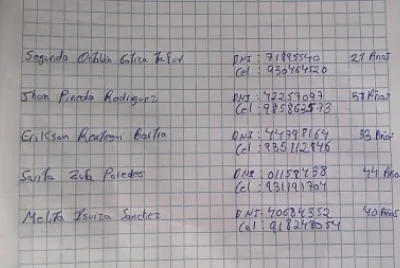 Segundo Gatica DNI: 71895540 21 Años
Cel: 930464520
Jhon Pinedo Rodriguez DNI: 42257097
Cel: 985862573
Erikson Reategui Bartra DNI: 44798164 33 Años
Cel: 935712846
Sarita Zuta Paredes DNI: 01158438 44 Años
Cel: 931191704
Melita Isuiza Sanchez DNI: 40684352 40 Años
Cel: 918248054